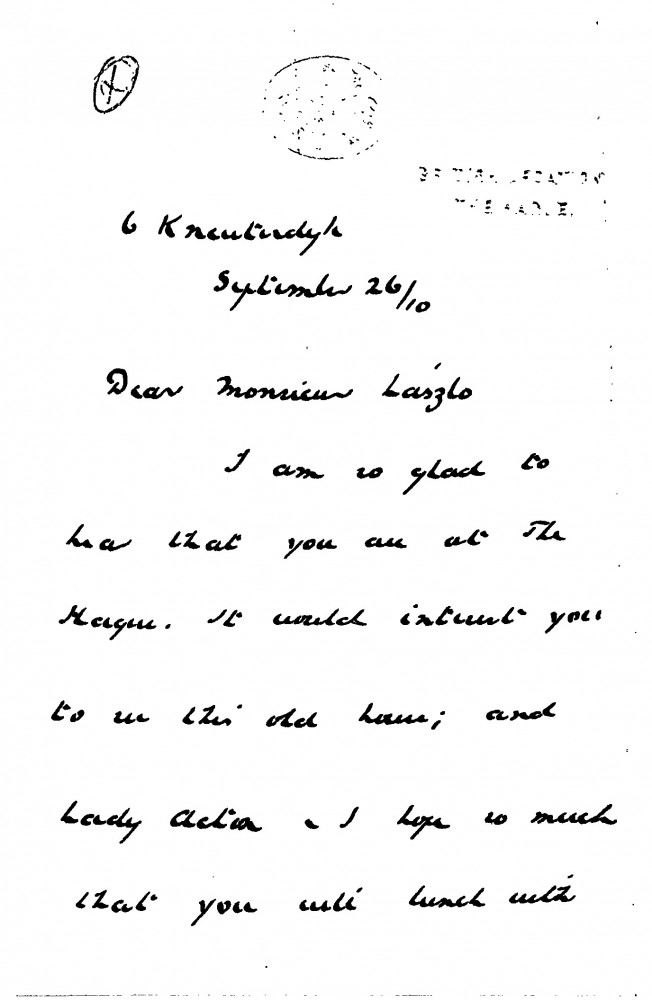 BRITISH LEGATION
THE HAGUE.
6 Kneuterdyk
September 26/10
Dear Monsieur László
I am so glad to
hear that you are at The
Hague. It would interest you
to see this old house; and
Lady Acton & I hope so much
that you will lunch with